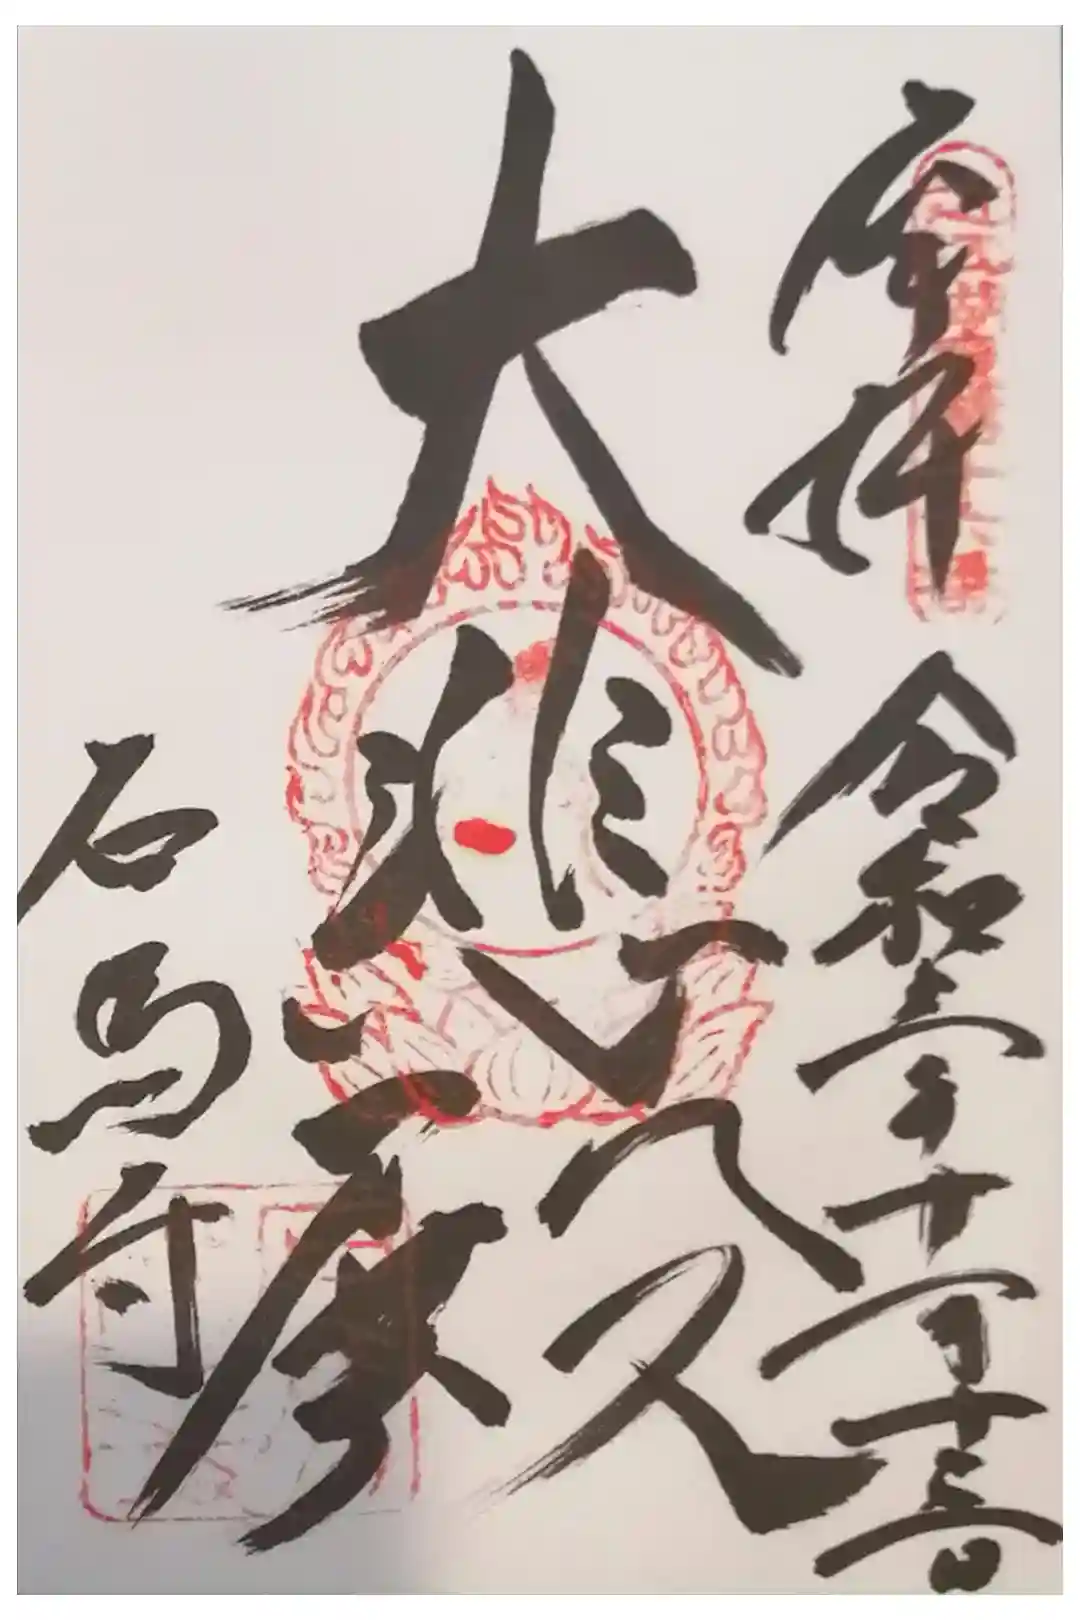 奉拝 令和三年十一月十三日
大悲殿
石馬寺